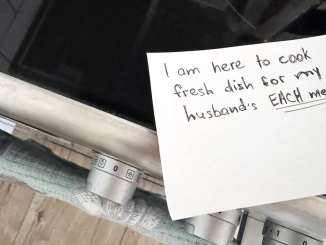 I am here to cook
fresh dish for my
husband's EACH me
0
1